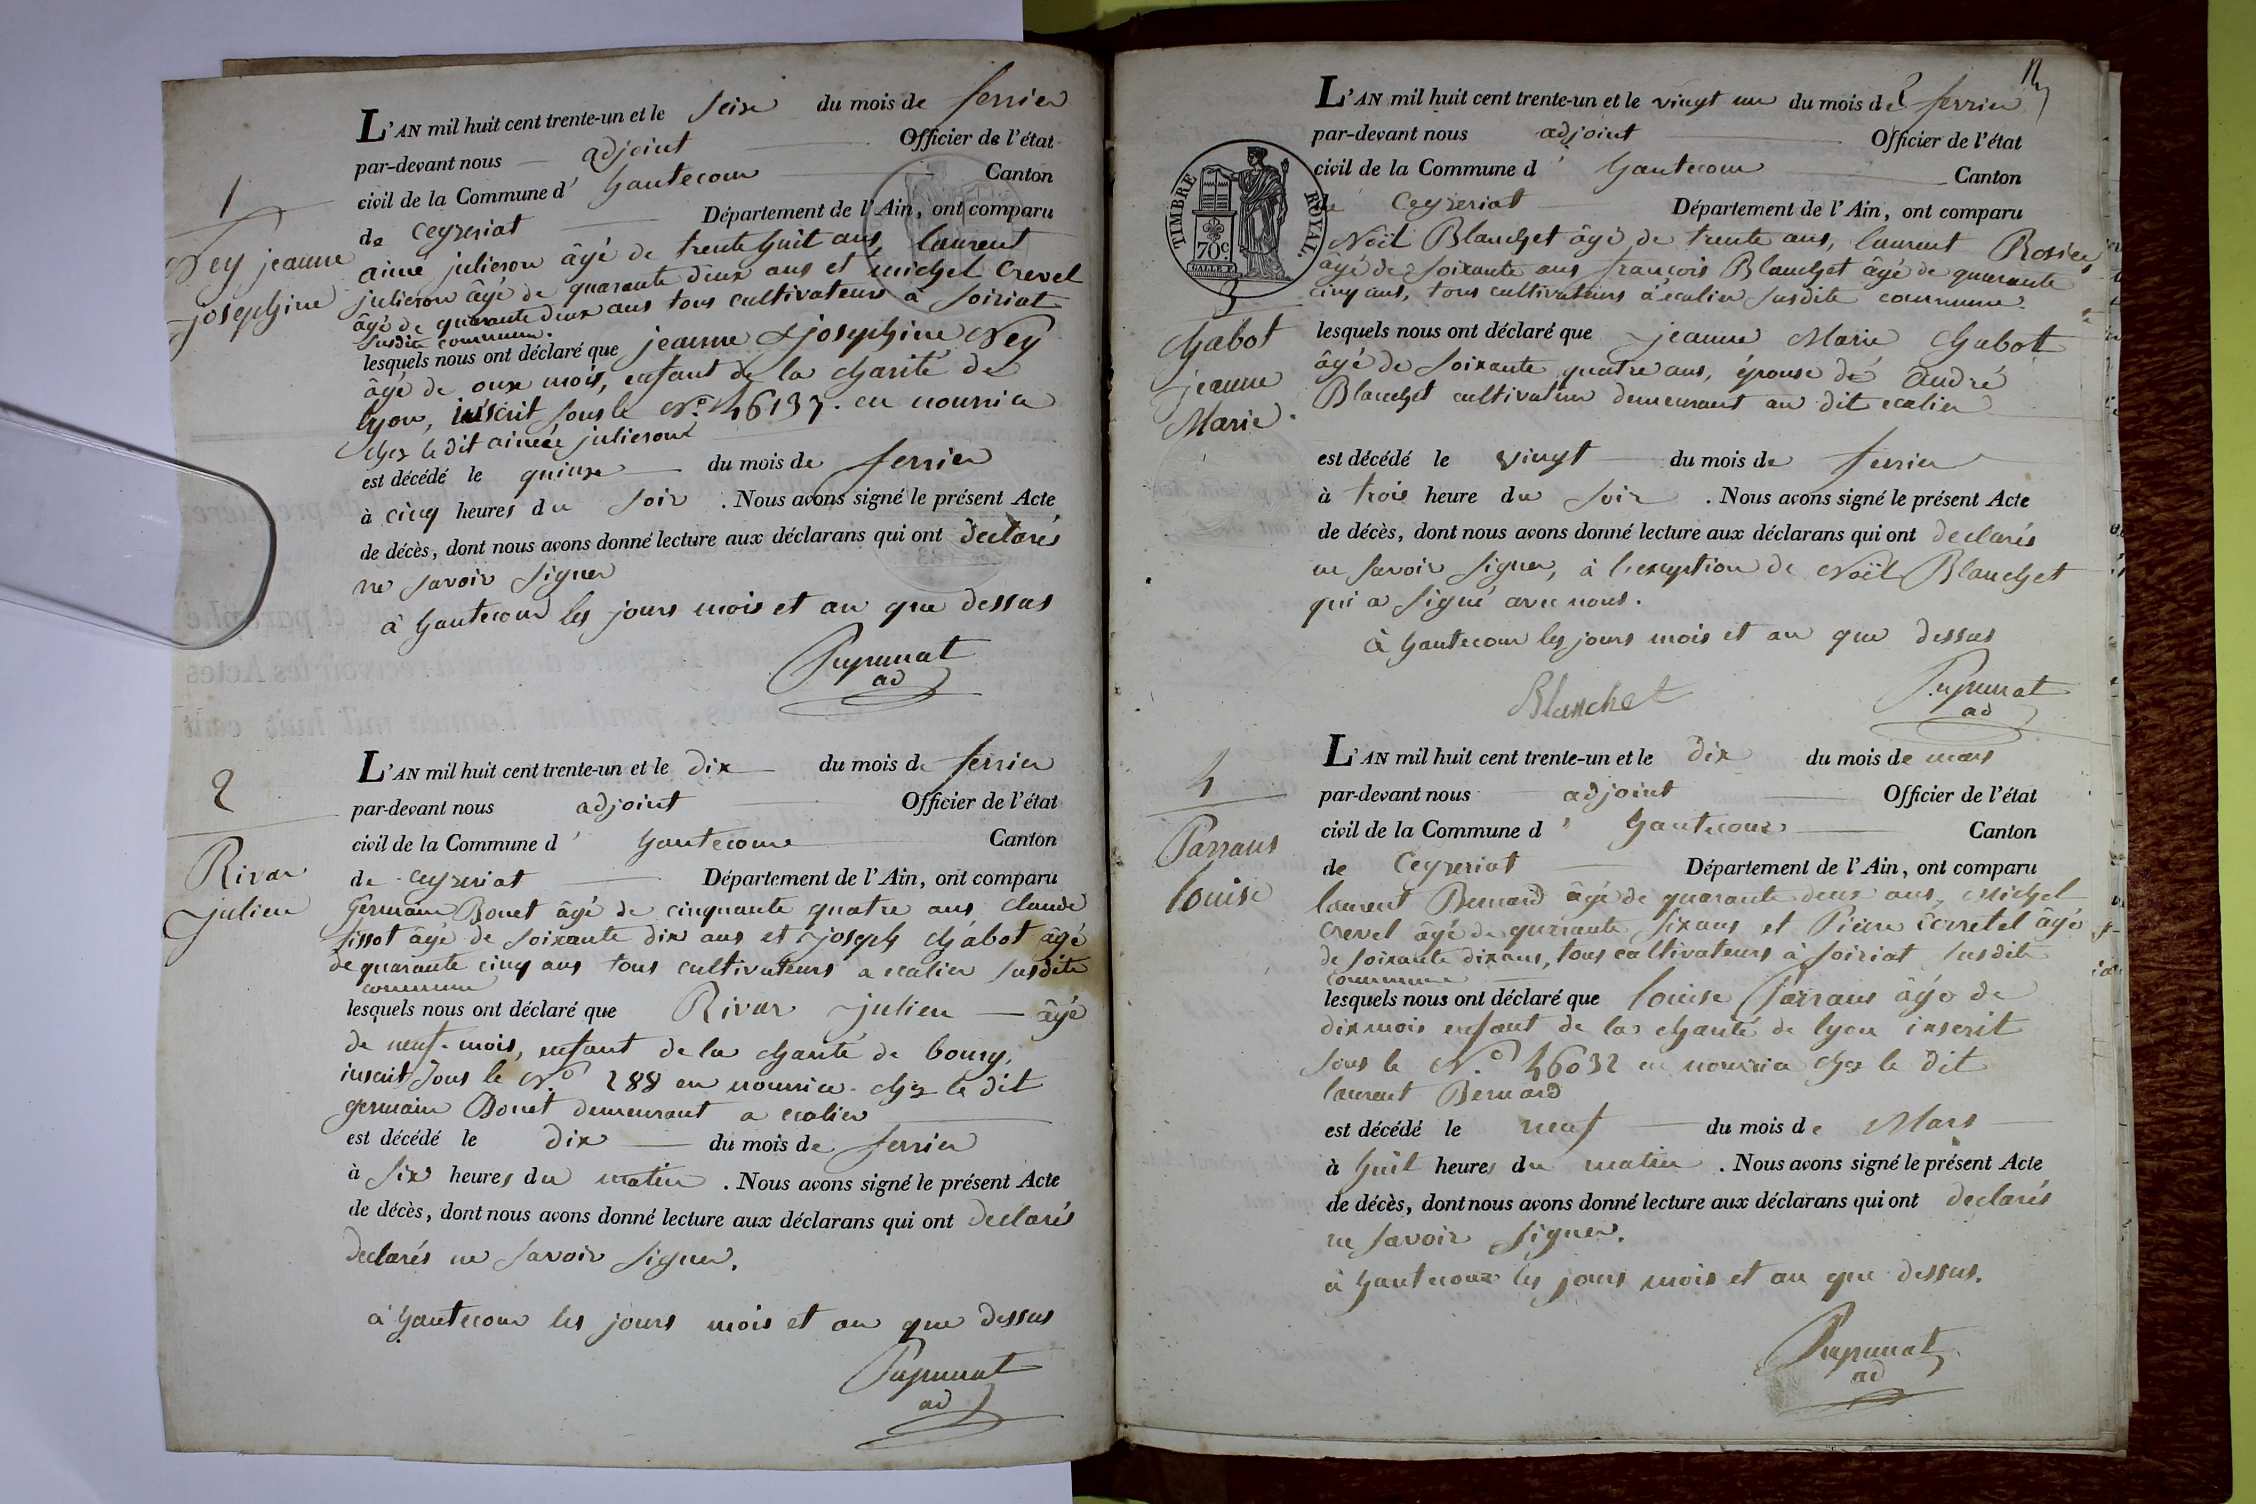 1
Ney jeanne
josephine
L'AN mil huit cent trente-un et le seize du mois de fevrier
par-devant nous adjoint Officier de l'état
civil de la Commune d' hautecour Canton
de Ceyzeriat Département de l'Ain, ont comparu
aimé julieron âgé de trente huit ans, laurent
julieron âgé de quarante deux ans et michel Crevel
âgé de quarante deux ans tous cultivateurs à soiriat
susdite commune.
lesquels nous ont déclaré que jeanne josephine Ney
âgé de onze mois, enfant de la charité de
lyon, inscrit sous le N.o 46137. en nourrice
chez le dit aimée julieron
est décédé le quinze du mois de fevrier
à cinq heures du soir. Nous avons signé le présent Acte
de décès, dont nous avons donné lecture aux déclarans qui ont declarés
ne savoir signer
à hautecour les jours mois et an que dessus
ad
2
Rivar
julien
L'AN mil huit cent trente-un et le dix du mois de fevrier
par-devant nous adjoint Officier de l'état
civil de la Commune d' hautecour Canton
de Ceyzeriat Département de l'Ain, ont comparu
Germain Bonet âgé de cinquante quatre ans claude
sissot âgé de soixante dix ans et joseph chabot âgé
de quarante cinq ans tous cultivateurs a ecalier susdite
commune
lesquels nous ont déclaré que Rivar julien âgé
de neuf mois, enfant de la charité de bourg,
inscrit sous le N.o 288 en nourrice chez le dit
germain Bonet demeurant a ecalier
est décédé le dix du mois de fevrier
à six heures du matin. Nous avons signé le présent Acte
de décès, dont nous avons donné lecture aux déclarans qui ont declarés
declarés ne savoir signer.
à hautecour les jours mois et an que dessus
ad
TIMBRE ROYAL.
70c
3
Chabot
jeanne
Marie.
L'AN mil huit cent trente-un et le vingt un du mois de fevrier
par-devant nous adjoint Officier de l'état
civil de la Commune d' hautecour Canton
de Ceyzeriat Département de l'Ain, ont comparu
Noël Blanchet âgé de trente ans, laurent Rosier
âgé de soixante ans françois Blanchet âgé de quarante
cinq ans, tous cultivateurs à ecalier susdite commune.
lesquels nous ont déclaré que jeanne Marie Chabot
âgé de soixante quatre ans, épouse de André
Blanchet cultivateur demeurant au dit ecalier
est décédé le vingt du mois de fevrier
à trois heure du soir. Nous avons signé le présent Acte
de décès, dont nous avons donné lecture aux déclarans qui ont declarés
ne savoir signer, à l'exception de Noël Blanchet
qui a signé avec nous.
à hautecour les jours mois et an que dessus
Blanchet
ad
4
Parraus
louise
L'AN mil huit cent trente-un et le dix du mois de mars
par-devant nous adjoint Officier de l'état
civil de la Commune d' hautecour Canton
de Ceyzeriat Département de l'Ain, ont comparu
laurent Bernard âgé de quarante deux ans, Michel
Crevel âgé de quarante six ans et Pierre âgé
de soixante dix ans, tous cultivateurs à soiriat susdite
commune
lesquels nous ont déclaré que louise Parraus âgé de
dix mois enfant de la charité de lyon inscrit
sous le N.o 46032 en nourrice chez le dit
laurent Bernard
est décédé le neuf du mois de Mars
à huit heures du matin. Nous avons signé le présent Acte
de décès, dont nous avons donné lecture aux déclarans qui ont declarés
ne savoir signer.
à hautecour les jours mois et an que dessus.
ad